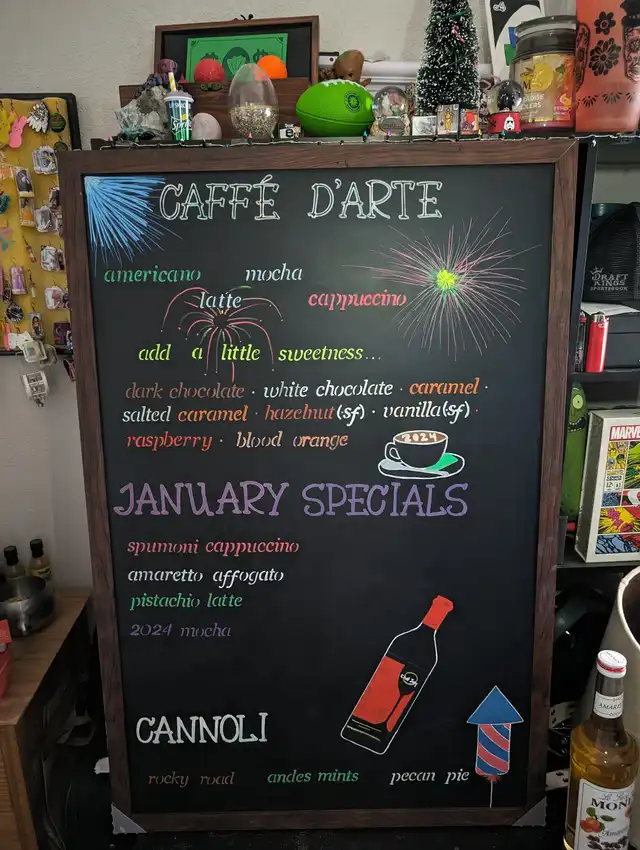 CAFFÉ D'ARTE
americano mocha
latte cappuccino
add a little sweetness...
dark chocolate · white chocolate · caramel ·
salted caramel · hazelnut (sf) · vanilla (sf) ·
raspberry · blood orange
2024
JANUARY SPECIALS
spumoni cappuccino
amaretto affogato
pistachio latte
2024 mocha
CANNOLI
rocky road andes mints pecan pie
DRAFT
KINGS
SPORTSBOOK
MARVEL
Sprite
AMARE
MONI